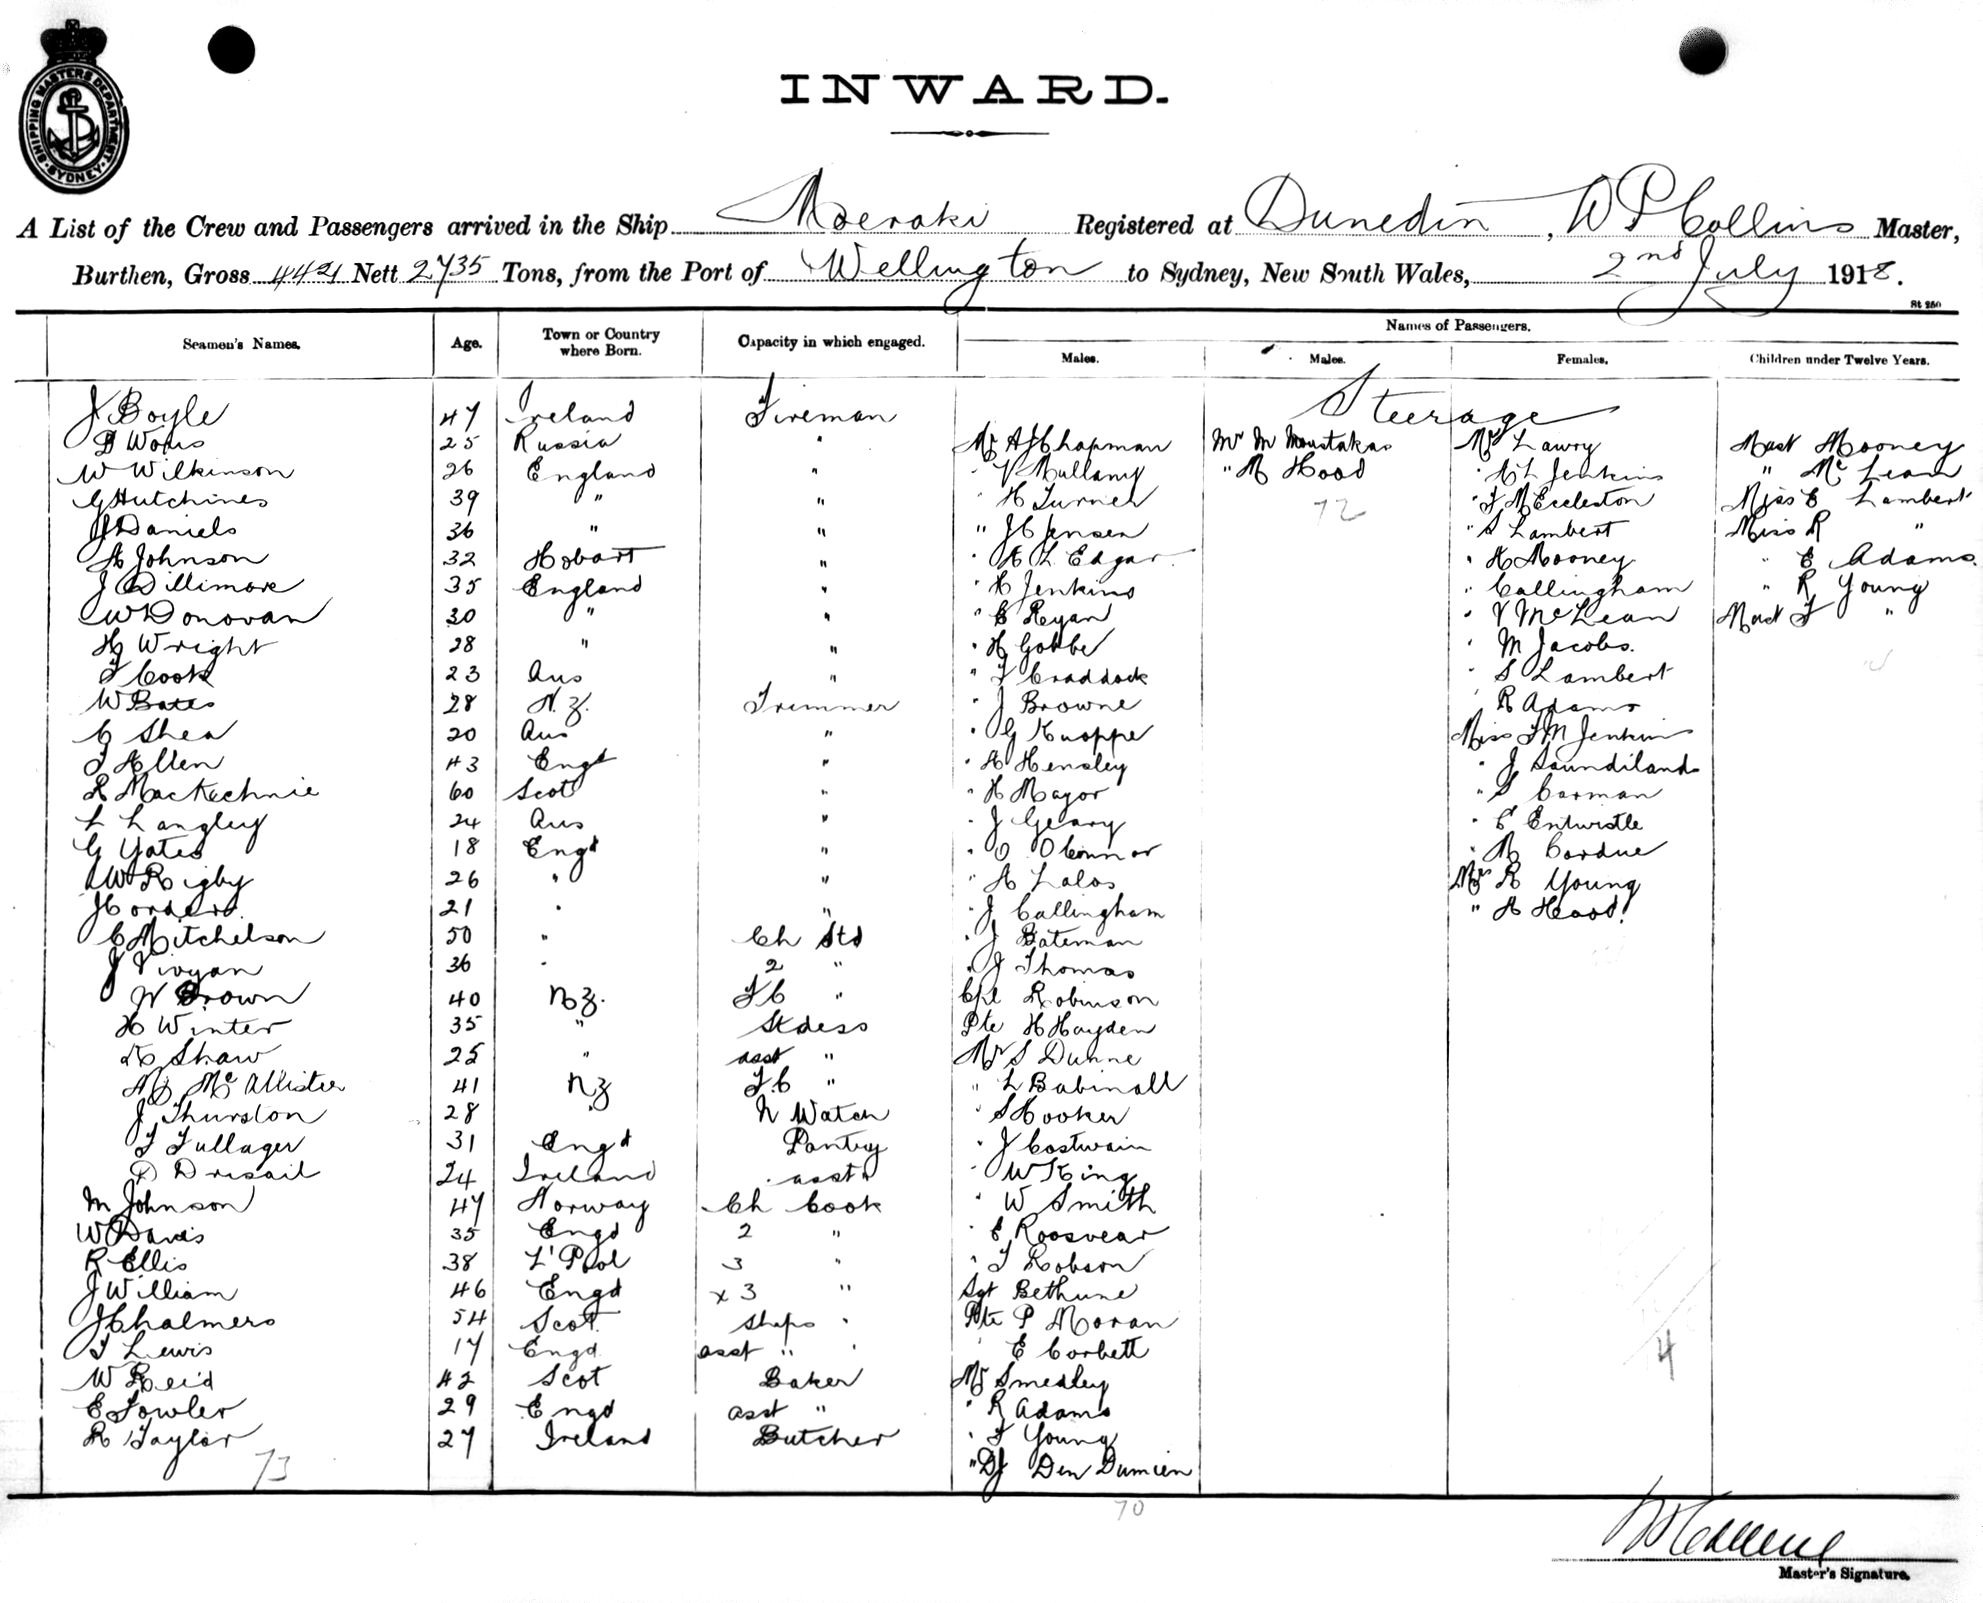 SHIPPING MASTERS DEPARTMENT
SYDNEY
INWARD.
A List of the Crew and Passengers arrived in the Ship Moeraki Registered at Dunedin, W P Collins Master,
Burthen, Gross 4421 Nett 2735 Tons, from the Port of Wellington to Sydney, New South Wales, 2nd July 1918.
St 250
Names of Passengers.
Seamen's Names. Age. Town or Country where Born. Capacity in which engaged. Males. Males. Females. Children under Twelve Years.
Steerage
J Boyle 47 Ireland Fireman
25 Russia " Mr A J Chapman Mr M Moustakas Mrs Lawry Mast Mooney
W Wilkinson 26 England " " V Mullany " A Hood " A L Jenkins " Mc Lean
G Hutchines 39 " " " H Turner 72 " F M Eccleston Miss E Lambert
J Daniels 36 " " " J C Jensen " S Lambert Miss R "
A Johnson 32 Hobart " " A L Edgar " H Mooney " E Adams
J Dillimore 35 England " " H Jenkins " Callingham " R Young
W Donovan 30 " " " E Ryan " V McLean Mast F "
H Wright 28 " " " H Gobbe " M Jacobs.
F Cook 23 Aus " " F Craddock " S Lambert
W Bates 28 N.Z. Trimmer " J Browne " R Adams
C Shea 20 Aus " " G Knoppe Miss F M Jenkins
F Allen 43 Engd " " A Hensley " J Soundiland
R MacKechnie 60 Scot " " H Mayor " S Carman
L Langley 24 Aus " " J Geary " E Entwistle
G Yates 18 Engd " " O OConnor " M Cordue
W Rigby 26 " " " A Lalos Mrs R Young
J Corders 21 " " " J Callingham " A Hood
C Mitchelson 50 " Ch Std " J Bateman
J Vivyan 36 " 2 " " J Thomas
W Brown 40 NZ. F C " Cpl Robinson
H Winter 35 " Stdess Pte H Hayden
K Shaw 25 " asst " Mr S Dunne
Mc Allister 41 NZ F.C " " L Babinall
J Thurston 28 " N Watch " S Hooker
F Fullager 31 Engd Pantry " J Costwain
D Drisail 24 Ireland asst " " W King
M Johnson 47 Norway Ch Cook " W Smith
W Davis 35 Engd 2 " " E Roosvear
R Ellis 38 L'Pool 3 " " F Robson
J William 46 Engd x 3 " Sgt Bethune
J Chalmers 54 Scot. Ships " Pte P Moran
F Lewis 17 Engd asst " " " E Corbett
W Reid 42 Scot Baker Mr Smedley
E Fowler 29 Engd asst " " R Adams
R Taylor 27 Ireland Butcher " F Young
73 " Den Dumien
4
70
Master's Signature.